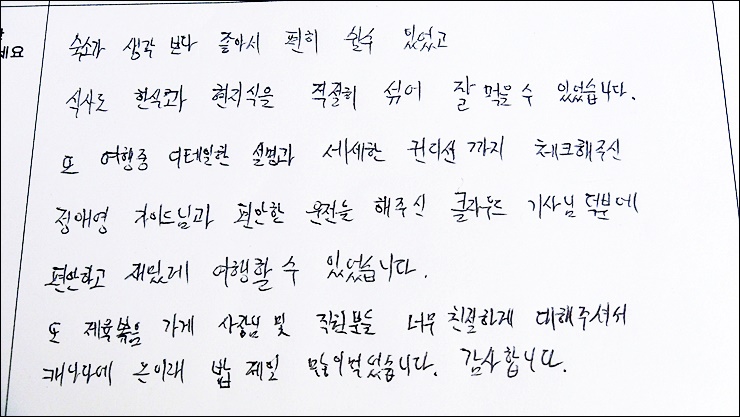 세요
숙소가 생각 보다 좋아서 편히 쉴수 있었고
식사도 한식과 현지식을 적절히 섞어 잘 먹을 수 있었습니다.
또 여행중 디테일한 설명과 세세한 컨디션 까지 체크해주신
정애영 가이드님과 편안한 운전을 해주신 클라우드 기사님 덕분에
편안하고 재밌게 여행할 수 있었습니다.
또 제육볶음 가게 사장님 및 직원분들 너무 친절하게 대해주셔서
캐나다에 온이래 밥 제일 많이먹었습니다. 감사합니다.